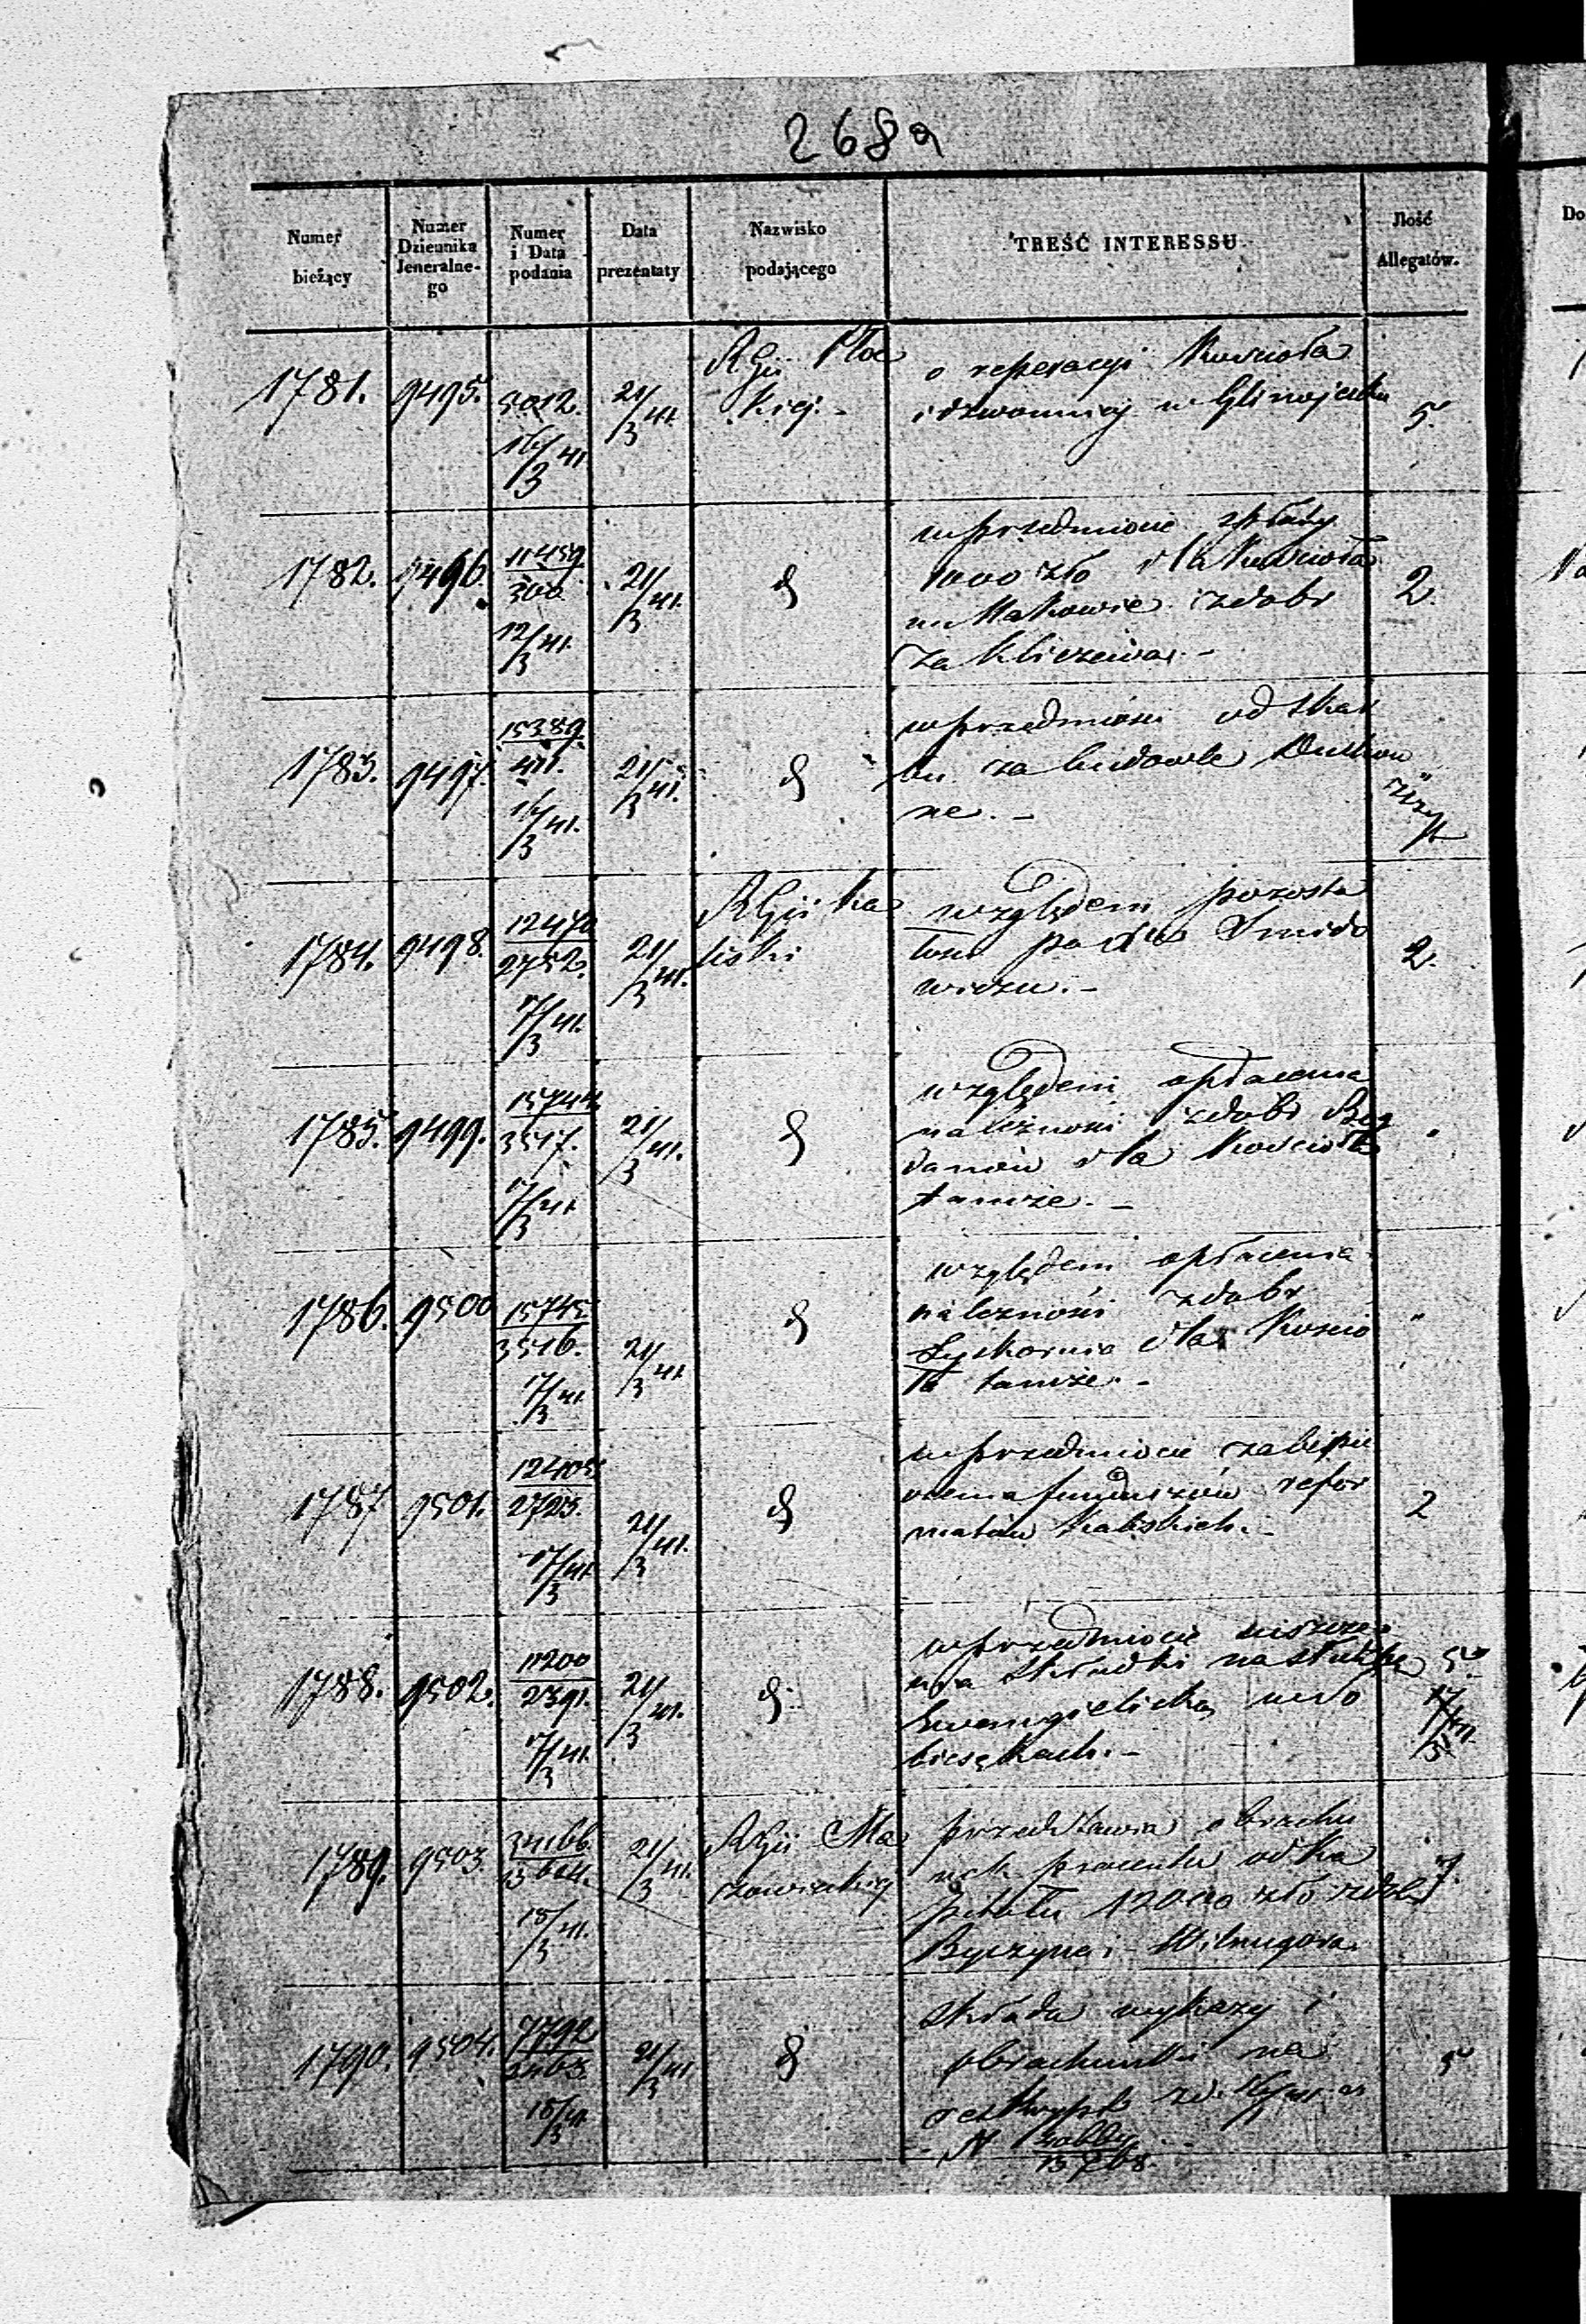 268a
Numer bieżący
Numer Dziennika Jeneralne-go
Numer i Data podania
Data prezentaty
Nazwisko podającego
TREŚĆ INTERESSU
Ilość Allegatów.
1781. 9495. 5012. 16/3 41 21/3 41. RGu Płoc
kiej.- o reperacyi Kościoła
i dzwonnicy w Glinojecku 5.
1782. 9496. 11459/300. 12/3 41. 21/3 41. d
w przedmiocie spłaty
1000 zło dla Kościoła
w Makowie z dobr
za Kliczewa.- 2.
1783. 9497. 15389/411. 16/3 41. 21/3 41. d
w przedmiocie od skar
bu za budowle Duchow
ne.-
1784. 9498. 12470/2752. 17/3 41. 21/3 41. RGu Ka
liski względem pozosta
łości po
wiczu.- 2.
1785. 9499. 15744/3517. 17/3 41 21/3 41. d
względem opłacenia
należności z dobr Bog
danów dla Kościoła
tamże.- "
1786. 9500 15745/3516. 17/3 41 21/3 41 d
względem opłacenia
należności z dobr
Łyskornia dla Kościo
ła tamże.- "
1787 9501. 12405/2723. 17/3 41 21/3 41. d
w przedmiocie zabezpie
czenia funduszów refor
matów Kaliskich.- 2
1788. 9502. 11200/2391. 17/3 41. 21/3 41. d.
w przedmiocie uiszcze
nia składki na służbę
Ewangielicką w So
biesękach.- 5.
1789. 9503. 34166/13604. 18/3 41. 21/3 41. RGu Ma
zowieckiej przedstawia obrachu
nek procentu od Ka
pitału 12000 zło z dobr
Byczyna i Wilnugóra. 7.
1790. 9504. 7792/3463. 18/3 41 21/3 41 d
składa wykazy i
obrachunki na
reskrypt
N 5